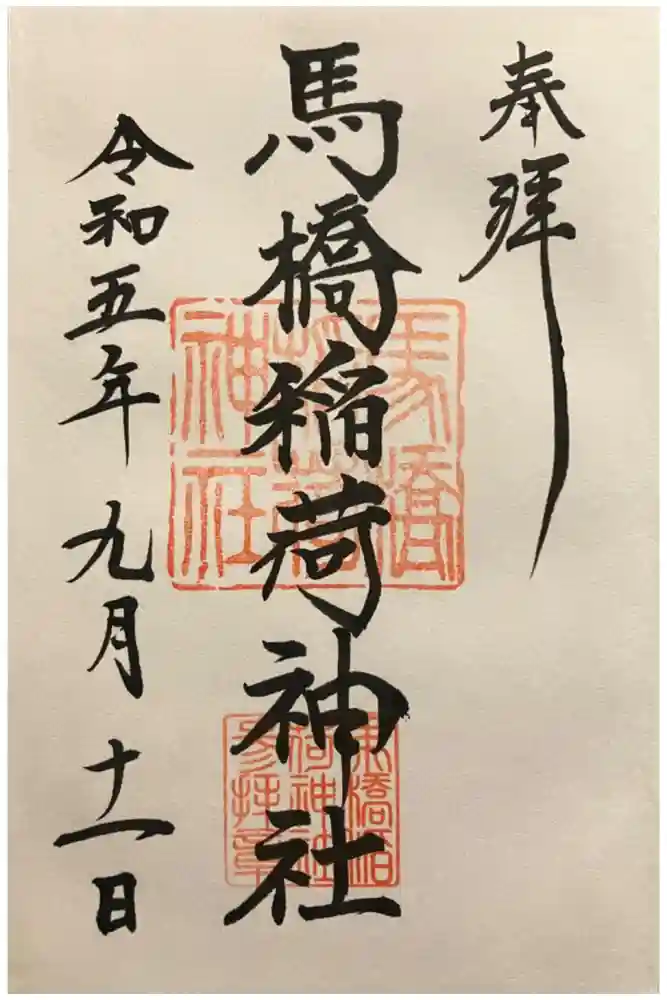 奉拝
馬橋稲荷神社
令和五年九月十一日
馬橋
稲荷
神社
馬橋稲
荷神社
参拝章